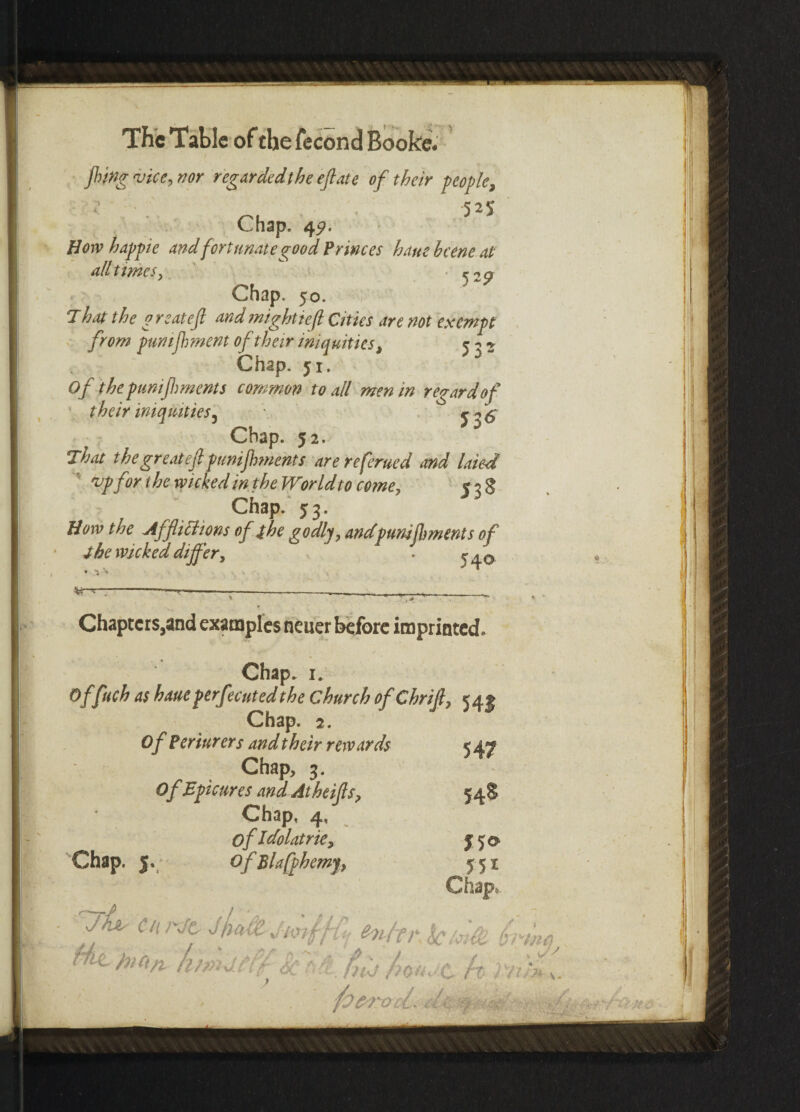 The Table of the ſecond Booke.
ſhing vice, nor regarded the eſtate of their people,
525
Chap. 49.
How happie and fortunate good Princes haue beene at
all times, 529
Chap. 50.
That the greateſt and mightieſt Cities are not exempt
from puniſhment of their iniquities, 532
Chap. 51.
Of the puniſhments common to all men in regard of
their iniquities, 536
Chap. 52.
That the greateſt puniſhments are reſerued and laied
vp for the wicked in the World to come, 538
Chap. 53.
How the Afflictions of the godly, and puniſhments of
the wicked differ, 540
Chapters, and examples neuer before imprinted.
Chap. 1.
Of ſuch as haue perſecuted the Church of Chriſt, 543
Chap. 2.
Of Periurers and their rewards 547
Chap, 3.
Of Epicures and Atheiſts, 548
Chap, 4,
Of Idolatrie, 550
Chap. 5. Of Blaſphemy, 551
Chap.
The curse shall swiftly enter & will bring
the man himself & all his house to ruin.
herod.